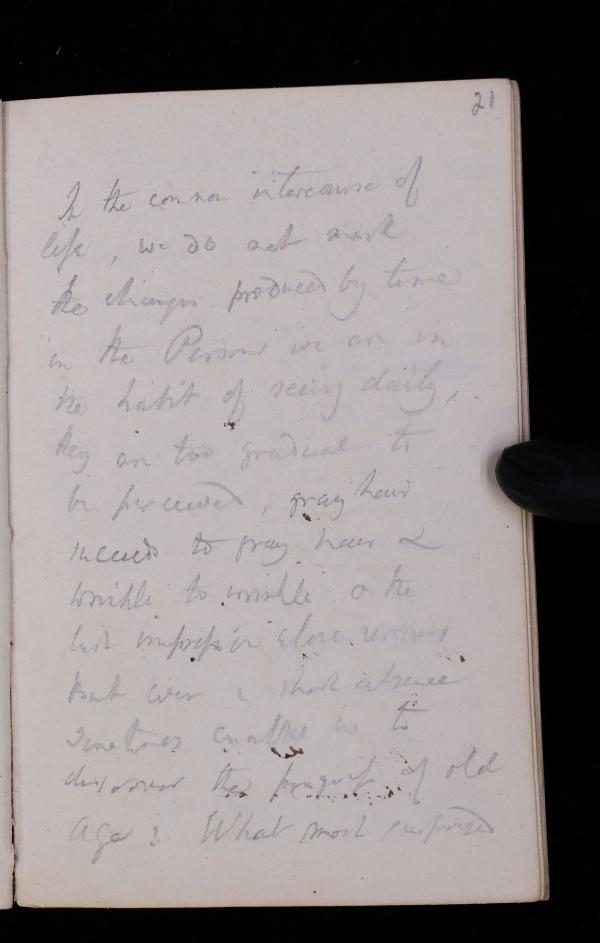 21
In the common intercourse of
life, we do not mark
the changes produced by time
in the Persons we are in
the habit of seeing daily,
they are too gradual to
be perceived, gray hair
succeeds to gray hair &
wrinkle to wrinkle & the
last impression alone remains
But even a short absence
sometimes enables us to
discover the progress of old
age: What most surprized